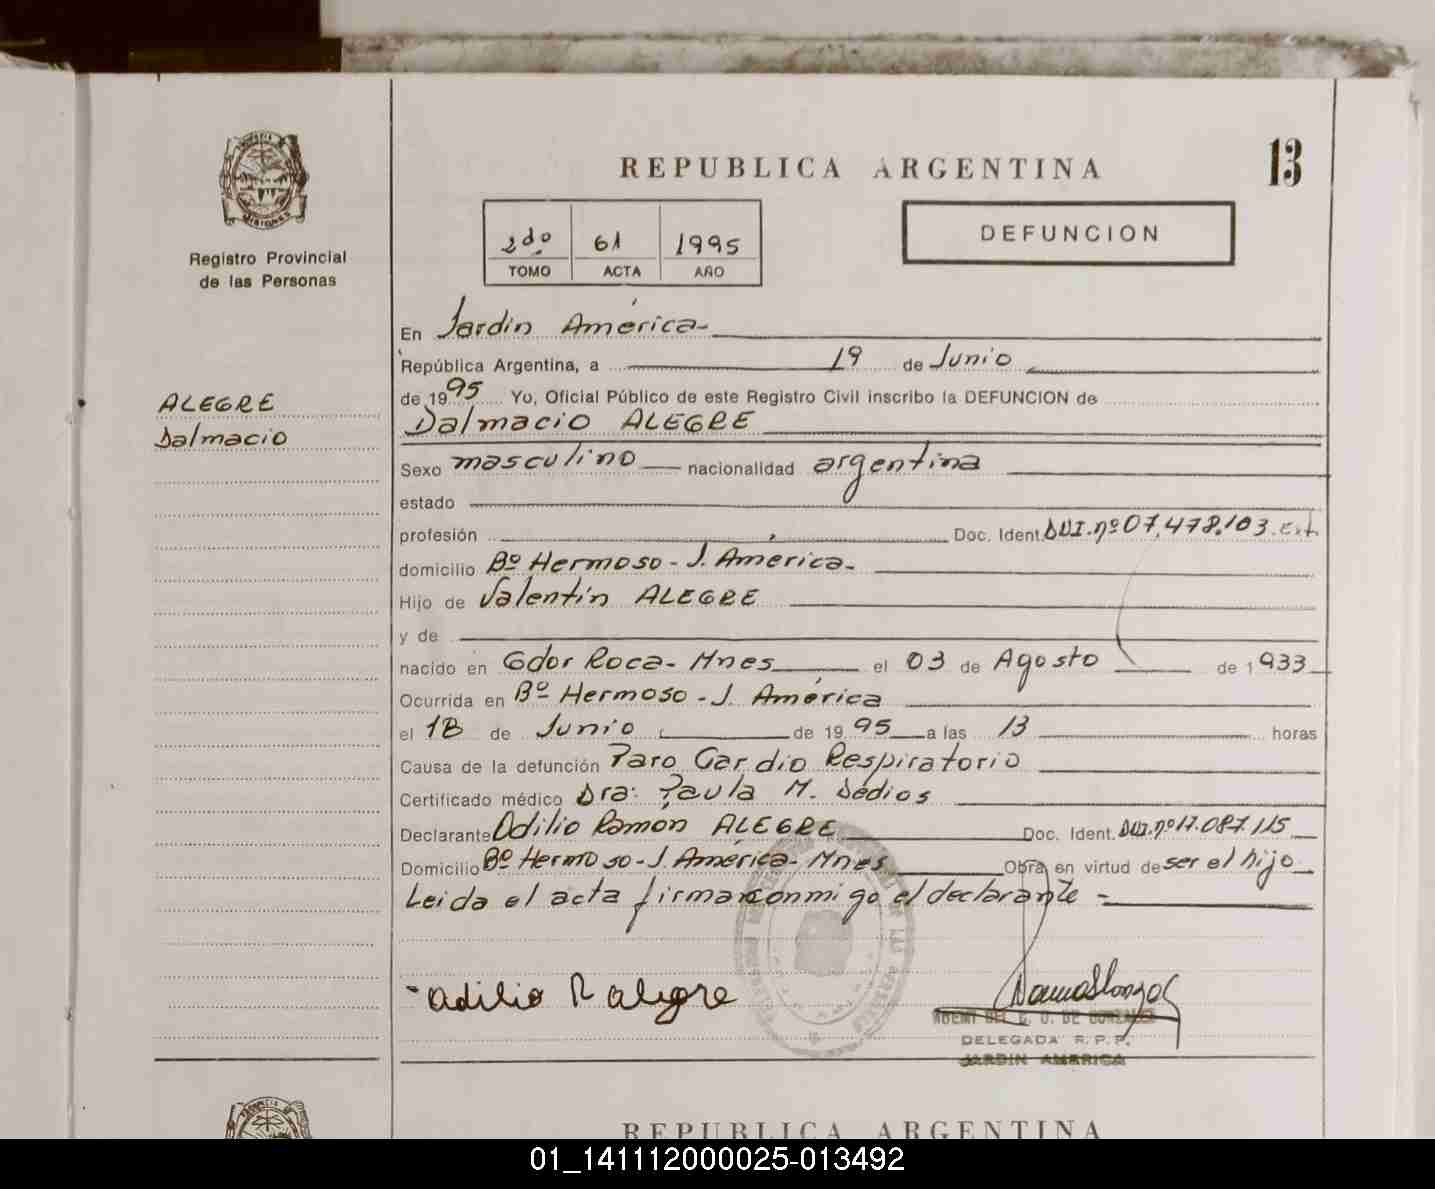 PROVINCIA DE
MISIONES
Registro Provincial
de las Personas
ALEGRE
Dalmacio
REPUBLICA ARGENTINA
13
2do 61 1995
TOMO ACTA AÑO
DEFUNCION
En Jardín América
República Argentina, a 19 de Junio
de 1995 Yo, Oficial Público de este Registro Civil inscribo la DEFUNCION de
Dalmacio ALEGRE
Sexo masculino nacionalidad argentina
estado
profesión Doc. Ident. DNI. nº 07.478.103. Ext.
domicilio Bº Hermoso - J. América.
Hijo de Valentín ALEGRE
y de
nacido en Gdor Roca - Mnes el 03 de Agosto de 1933
Ocurrida en Bº Hermoso - J. América
el 18 de Junio de 1995 a las 13 horas
Causa de la defunción Paro Cardio Respiratorio
Certificado médico Dra: Paula M. Dedios
Declarante Odilio Ramón ALEGRE Doc. Ident. DNI. nº 17.087.115
Domicilio Bº Hermoso - J. América - Mnes Obra en virtud de ser el hijo
Leida el acta firma conmigo el declarante -
odilio R alegre
DE GONZALEZ
DELEGADA R.P.P.
JARDIN AMERICA
REPUBLICA ARGENTINA
01_141112000025-013492